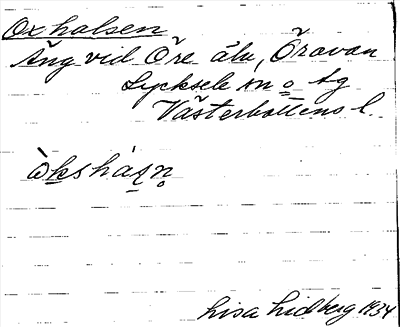 Oxhalsen
Äng vid Öre älv, Öravan
Lycksele kn o. tg
Västerbottens l.
òkshàʟsn̥
Lisa Lidberg 1934